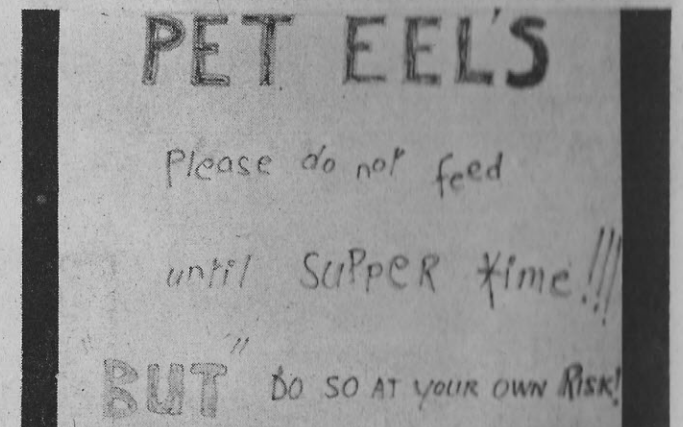 PET EEL'S
Please do not feed
until SUPPER time!!!
"BUT" DO SO AT YOUR OWN RISK!